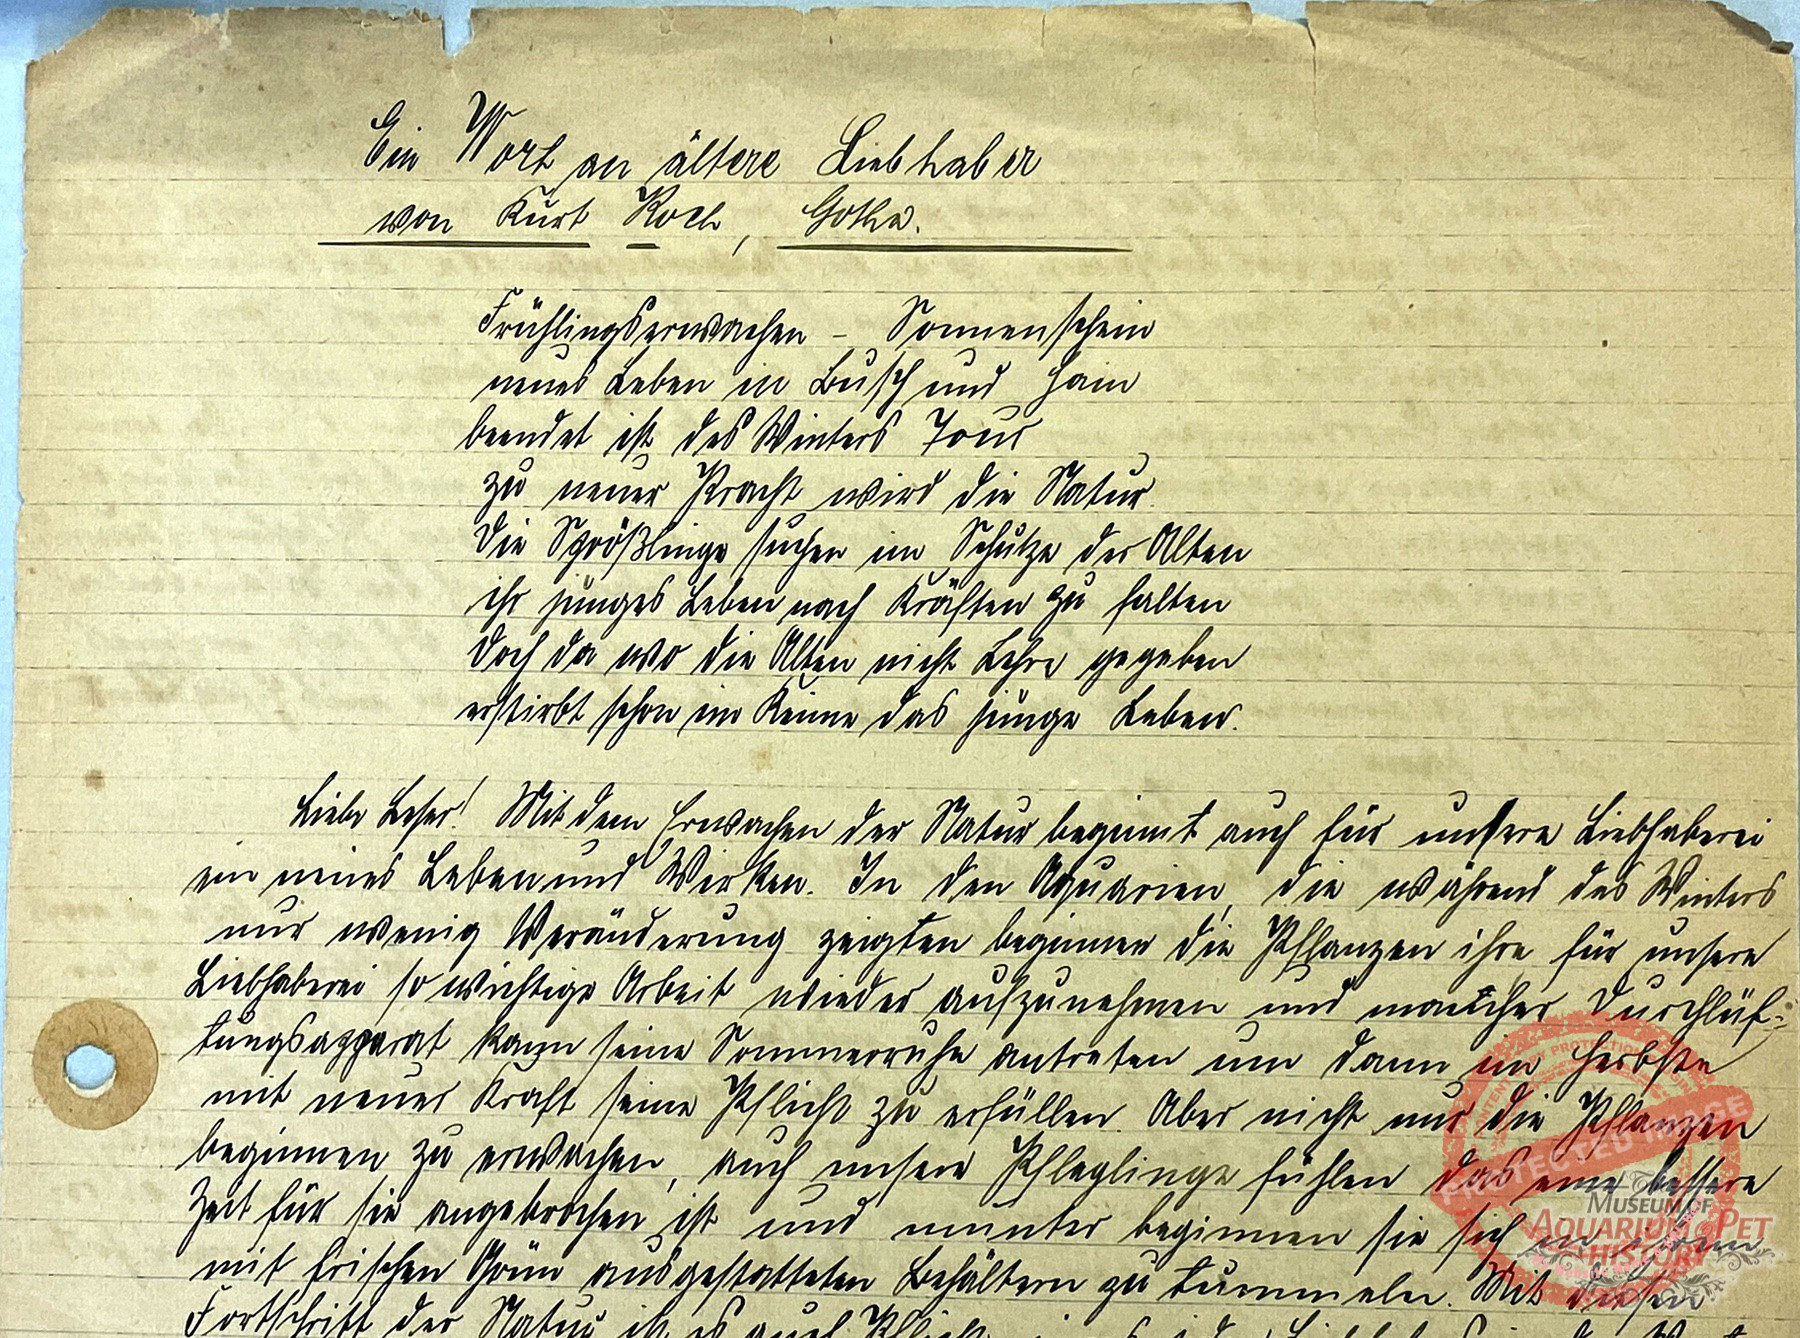 Ein Wort an ältere Liebhaber
von Kurt Koch, Gotha.
Frühlingserwachen – Sonnenschein
neues Leben in Busch und Hain
beendet ist des Winters Tour
zu neuer Pracht wird die Natur.
Die Sprößlinge suchen im Schutze der Alten
ihr junges Leben nach Kräften zu halten
Doch da wo die Alten nicht Lehre gegeben
erstirbt schon im Keime das junge Leben.
Liebe Leser! Mit dem Erwachen der Natur beginnt auch für unsere Liebhaberei
ein neues Leben und Wirken. In den Aquarien, die während des Winters
nur wenig Veränderung zeigten beginnen die Pflanzen ihre für unsere
Liebhaberei so wichtige Arbeit wieder aufzunehmen und mancher Durchlüf-
tungsapparat kann seine Sommerruhe antreten um dann im Herbste
mit neuer Kraft seine Pflicht zu erfüllen. Aber nicht nur die Pflanzen
beginnen zu erwachen, auch unsere Pfleglinge fühlen das eine bessere
Zeit für sie angebrochen ist und munter beginnen sie sich in ihren
mit frischen Grün ausgestatteten Behältern zu tummeln. Mit diesen
Fortschritt der Natur ist es auch Pflicht
PROTECTED IMAGE
THE
MUSEUM OF
AQUARIUM & PET
HISTORY